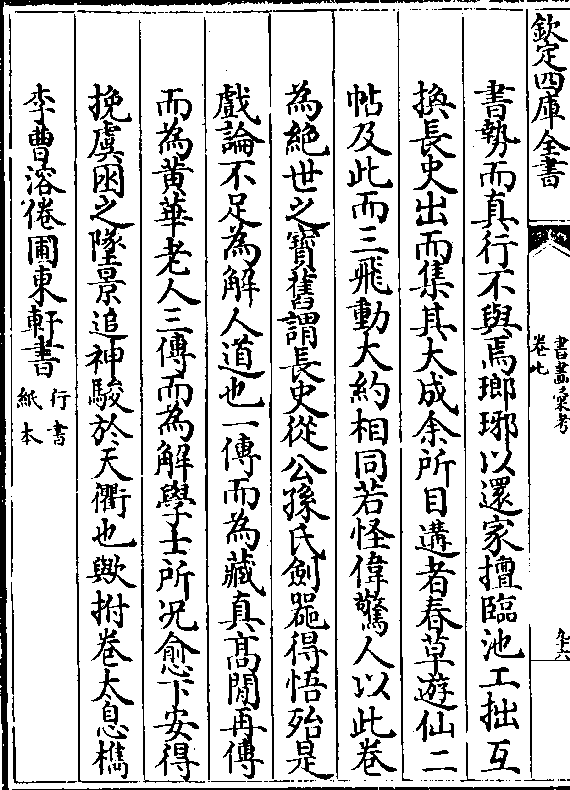 欽定四庫全書
書畫彙考
卷七
九十六
書勢而真行不與焉瑯琊以還家擅臨池工拙互
換長史出而集其大成余所目遘者春草遊仙二
帖及此而三飛動大約相同若怪偉驚人以此卷
為絶世之寶舊謂長史從公孫氏劍器得悟殆是
戲論不足為解人道也一傳而為藏真髙閒再傳
而為黄華老人三傳而為解學士所况愈下安得
挽虞囦之墜景追神駿於天衢也歟拊卷太息檇
李曹溶倦圃東軒書
行書
紙本